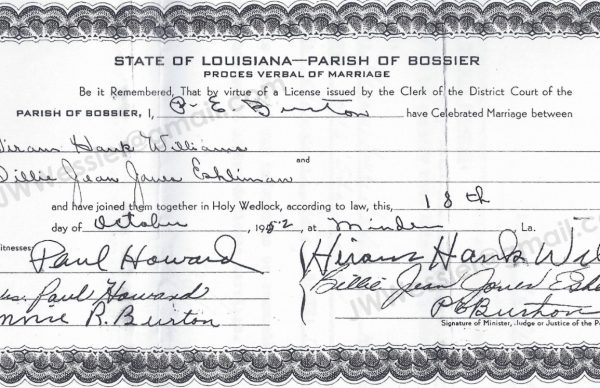 STATE OF LOUISIANA—PARISH OF BOSSIER
PROCES VERBAL OF MARRIAGE
Be it Remembered, That by virtue of a License issued by the Clerk of the District Court of the
PARISH OF BOSSIER, I, P. E. Burton have Celebrated Marriage between
Hiram Hank Williams and
Billie Jean Jones Eshliman
and have joined them together in Holy Wedlock, according to law, this, 18th
day of October 1952, at Minden La.
Witnesses:
Paul Howard
Mrs. Paul Howard
R. Burton
Hiram Hank Wil
Billie Jean Jones Esh
P E Burton
Signature of Minister, Judge or Justice of the Pe
JWWessier@gmail.com